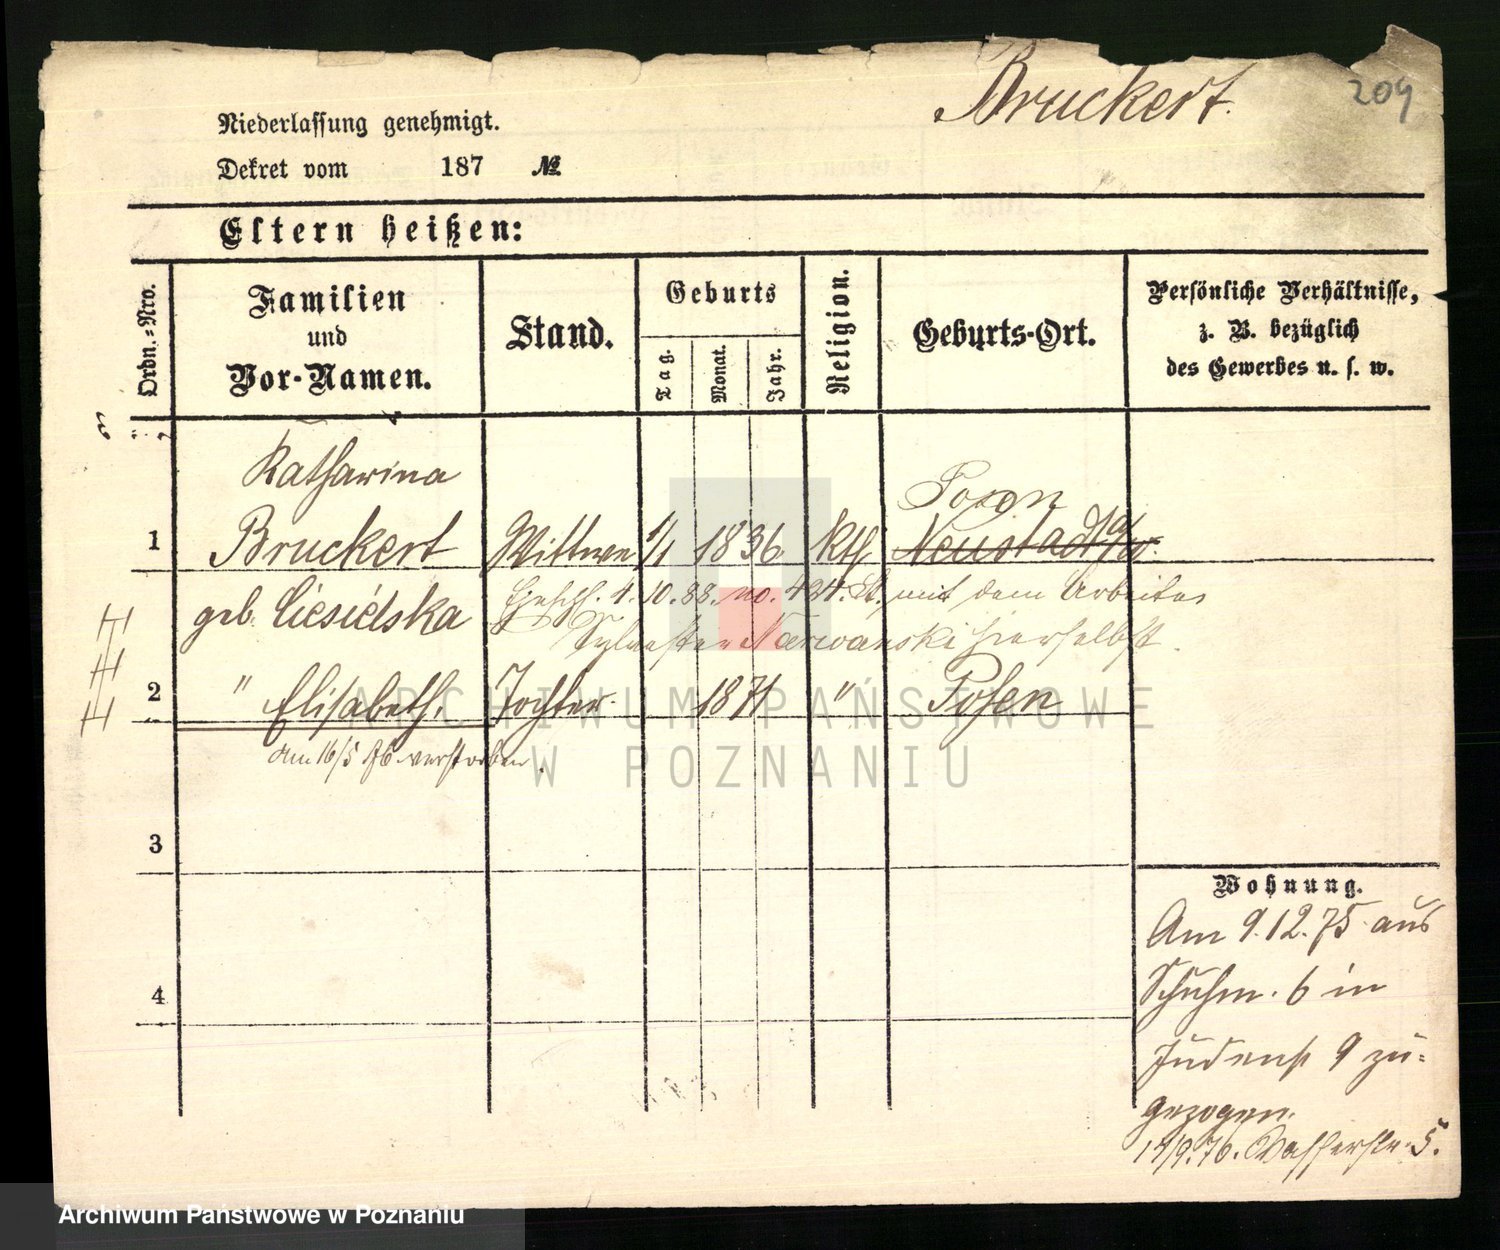 Bruckert.
209
Niederlassung genehmigt.
Dekret vom 187 №
Eltern heißen:
Ordn.=Nro.
Familien
und
Vor-Namen.
Stand.
Geburts
Tag.
Monat.
Jahr.
Religion.
Geburts-Ort.
Persönliche Verhältnisse,
z. B. bezüglich
des Gewerbes u. s. w.
Katharina
Posen
1 Bruckert Wittwe 1/1 1836 kth. Neustadt a/W.
geb. Ciesielska
Eheschl. 4. 10. 88. no. 424. St. mit dem Arbeiter
Sylvester hierselbst.
2 " Elisabeth. Tochter. 1871 " Posen
Am 16/5 76 verstorben.
3
4
Wohnung.
Am 9.12.75 aus
Schuhm. 6 in
Judenst 9 zu=
gezogen.
14/9.76. Wasserstr. 5.
ARCHIWUM PAŃSTWOWE
W POZNANIU
Archiwum Państwowe w Poznaniu